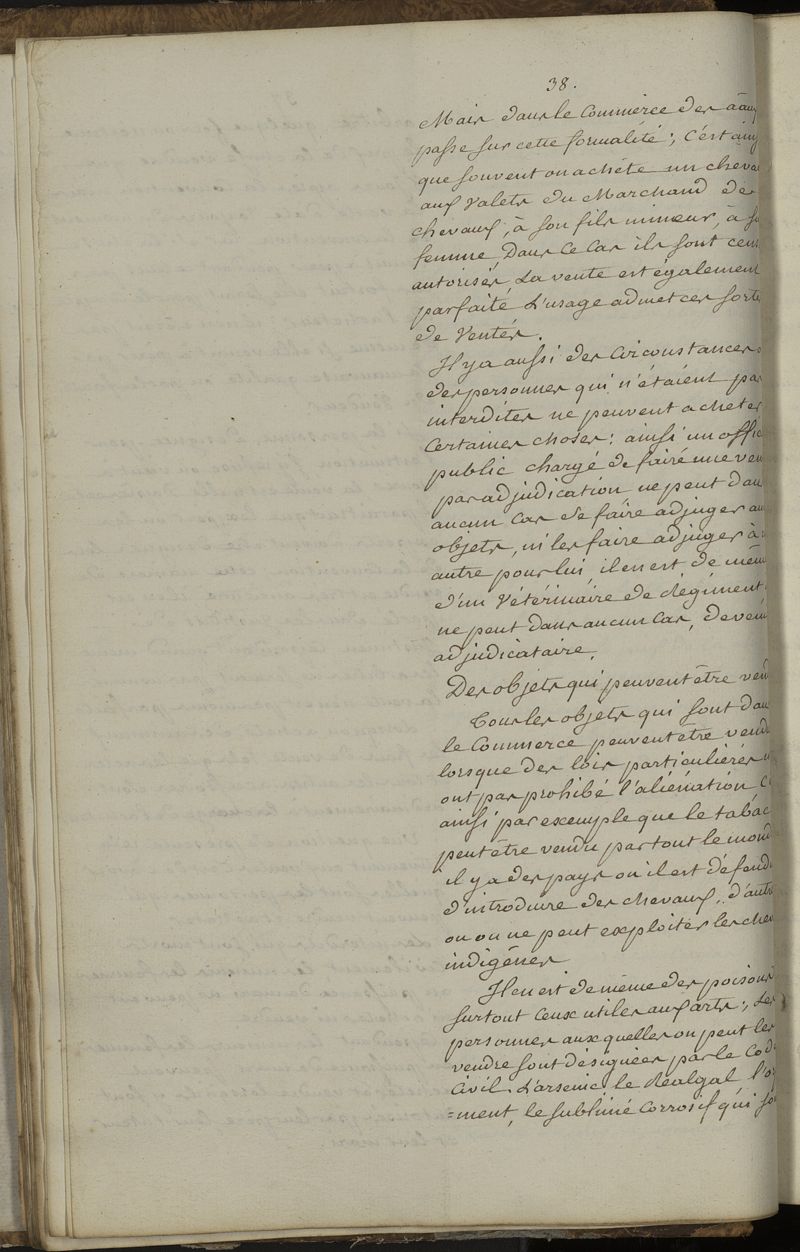 38.
Mais dans le Commerce des
passe sur cette formalité; C'est
que souvent on achéte un cheva
aux Valets du Marchand de
chevaux, à son fils mineur, à
femme, Dans ce Cas ils sont cen
autorisés, La vente est également
parfaite L'usage admet ces sorte
de Ventes.
Il y a aussi des Circonstances
des personnes qui n'étaient pas
interdites ne peuvent acheter
Certaines choses: ainsi un offic
public chargé de faire une ven
par adjudication ne peut dan
aucun Cas se faire adjuger au
objets, ni les faire adjuger à
autre pour lui il en est de mêm
d'un Vétérinaire de Régiment
ne peut Dans aucun Cas, deveni
adjudicataire,
Des objets qui peuvent être ven
Tous les objets qui sont dan
le Commerce peuvent être vend
lorsque des lois particulières
ont pas prohibé l'aliénation
ainsi par exemple que le tabac
peut être vendu par tout le mond
il y a des pays ou il est défend
d'introduire des chevaux, d'autre
ou on ne peut exploiter les che
indigénes
Il en est de même des poisons
surtout Ceux utiles aux arts, Les
personnes aux quelles on peut les
vendre sont désignées par le Cod
Civil. L'arsenic, le Réalgal l'o
=ment, le sublimé Corrosif qui so